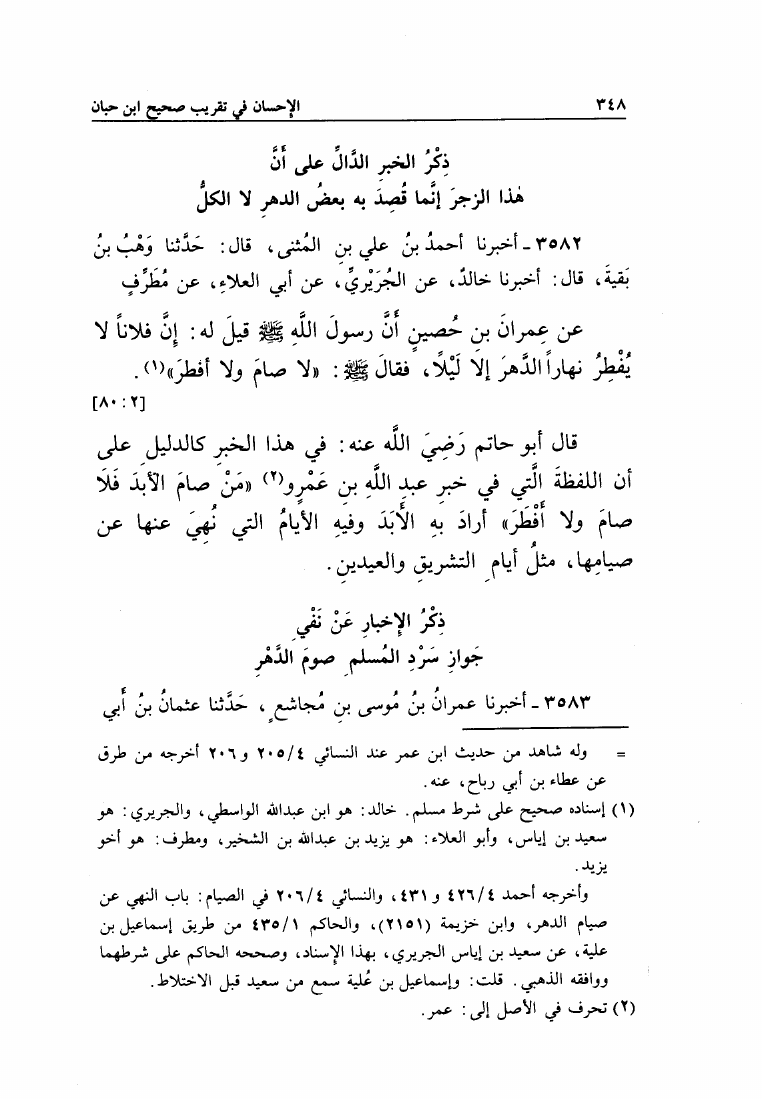 ٣٤٨ الإحسان في تقريب صحيح ابن حبان
ذِكْرُ الخبرِ الدَّالِّ على أَنَّ
هٰذا الزجرَ إنَّما قُصِدَ به بعضُ الدهرِ لا الكلُّ
٣٥٨٢ ـ أخبرنا أحمدُ بنُ علي بنِ المُثنى، قال: حَدَّثنا وَهْبُ بنُ
بَقيةَ، قال: أخبرنا خالدٌ، عن الجُرَيْريِّ، عن أبي العلاءِ، عن مُطَرِّفٍ
عن عِمرانَ بنِ حُصينٍ أَنَّ رسولَ اللَّهِ ﷺ قيلَ له: إنَّ فلاناً لا
يُفْطِرُ نهاراً الدَّهرَ إلا لَيْلًا، فقالَ ﷺ: «لا صامَ ولا أفطرَ»(١).
[٢: ٨٠]
قال أبو حاتم رَضِيَ اللَّه عنه: في هذا الخبرِ كالدليلِ على
أن اللفظةَ الَّتي في خبرِ عبدِ اللَّهِ بن عَمْرٍو(٢) «مَنْ صامَ الأبدَ فَلَا
صامَ ولا أَفْطَرَ» أرادَ بِهِ الأَبَدَ وفيهِ الأيامُ التي نُهِيَ عنها عن
صيامِها، مثلُ أيامِ التشريقِ والعيدينِ.
ذِكْرُ الإِخبارِ عَنْ نَفْيِ
جَوازِ سَرْدِ المُسلمِ صومَ الدَّهْرِ
٣٥٨٣ ـ أخبرنا عمرانُ بنُ مُوسى بنِ مُجاشعٍ، حَدَّثنا عثمانُ بنُ أَبي
= وله شاهد من حديث ابن عمر عند النسائي ٢٠٥/٤ و ٢٠٦ أخرجه من طرق
عن عطاء بن أبي رباح، عنه.
(١) إسناده صحيح على شرط مسلم. خالد: هو ابن عبدالله الواسطي، والجريري: هو
سعيد بن إياس، وأبو العلاء: هو يزيد بن عبدالله بن الشخير، ومطرف: هو أخو
يزيد.
وأخرجه أحمد ٤٢٦/٤ و ٤٣١، والنسائي ٢٠٦/٤ في الصيام: باب النهي عن
صيام الدهر، وابن خزيمة (٢١٥١)، والحاكم ٤٣٥/١ من طريق إسماعيل بن
علية، عن سعيد بن إياس الجريري، بهذا الإسناد، وصححه الحاكم على شرطهما
ووافقه الذهبي. قلت: وإسماعيل بن عُلية سمع من سعيد قبل الاختلاط.
(٢) تحرف في الأصل إلى: عمر.